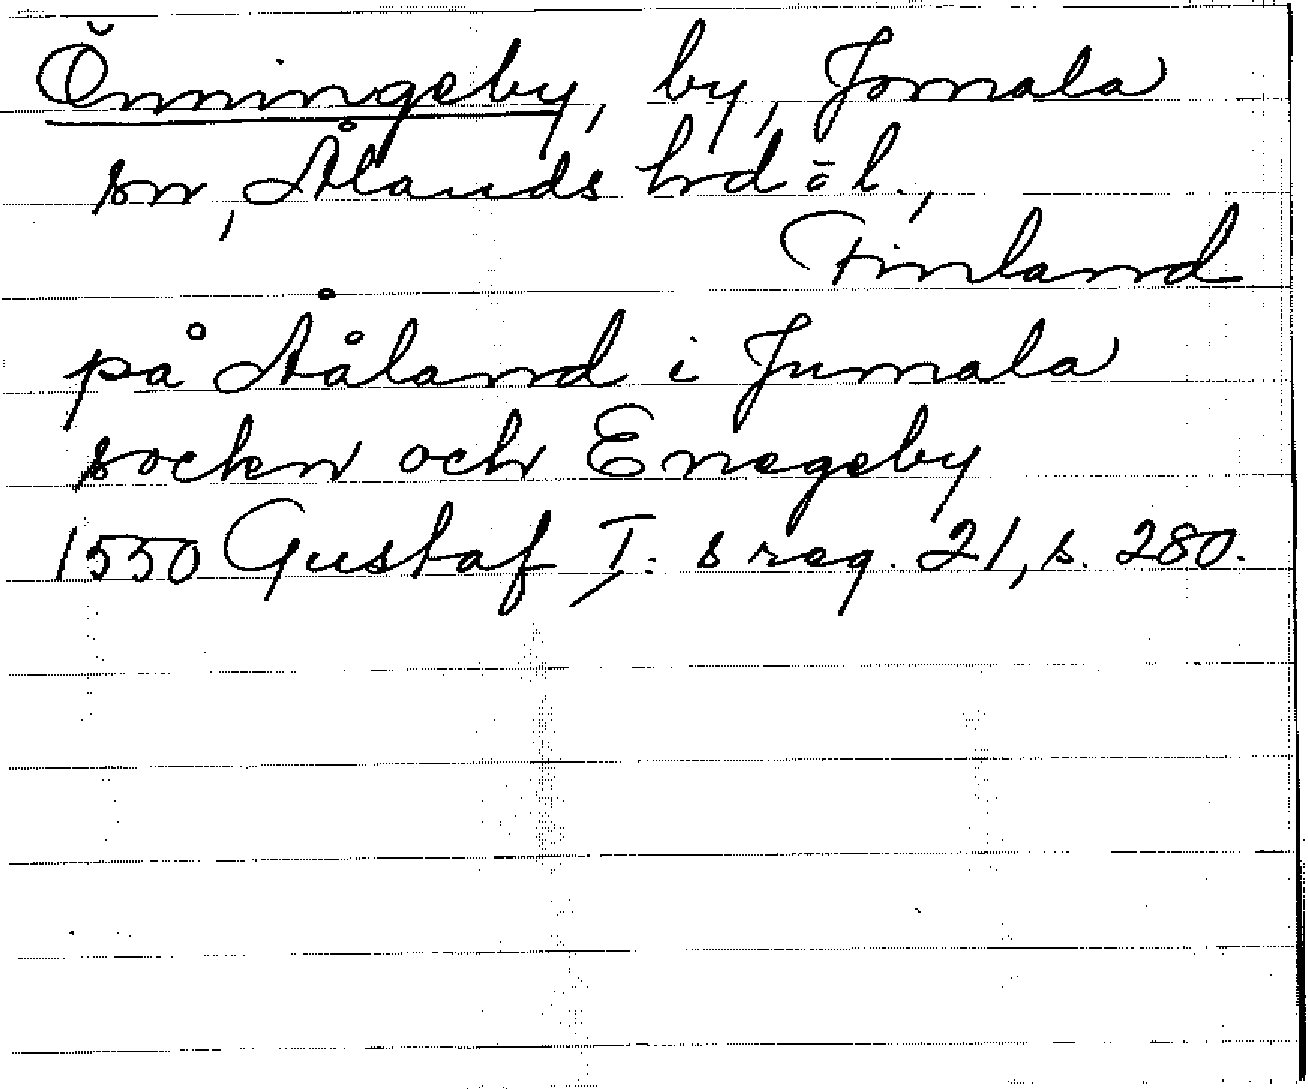 Önningeby, by, Jomala
sn, Ålands hrd o l.,
Finland
på Ååland i Jumala
sockn och Enegeby
1550 Gustaf I:s reg. 21, s. 280.